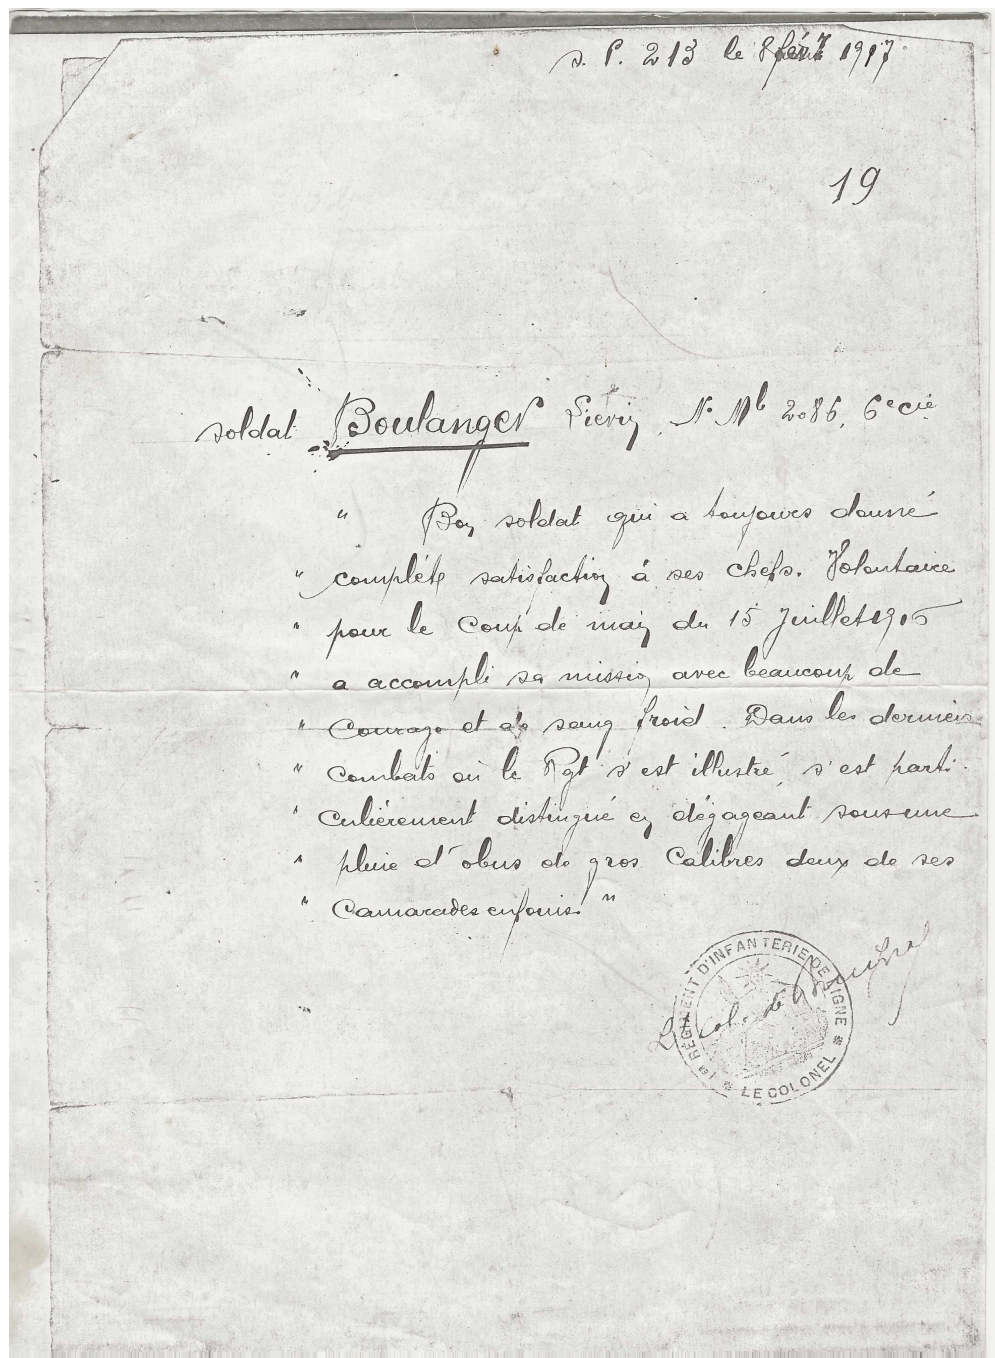 S. P. 213 le 8 févr 1917
19
soldat Boulanger N° Mle 2086, 6e cie
" Bon soldat qui a toujours donné
" complète satisfaction à ses chefs. Volontaire
" pour le Coup de main du 15 Juillet 1916
" a accompli sa mission avec beaucoup de
" Courage et de sang froid. Dans les derniers
" combats où le Rgt s'est illustré, s'est parti-
" culièrement distingué en dégageant sous une
" pluie d'obus de gros Calibres deux de ses
" Camarades enfouis. "
Le Col. de
1er RÉGIMENT D'INFANTERIE DE LIGNE * LE COLONEL *